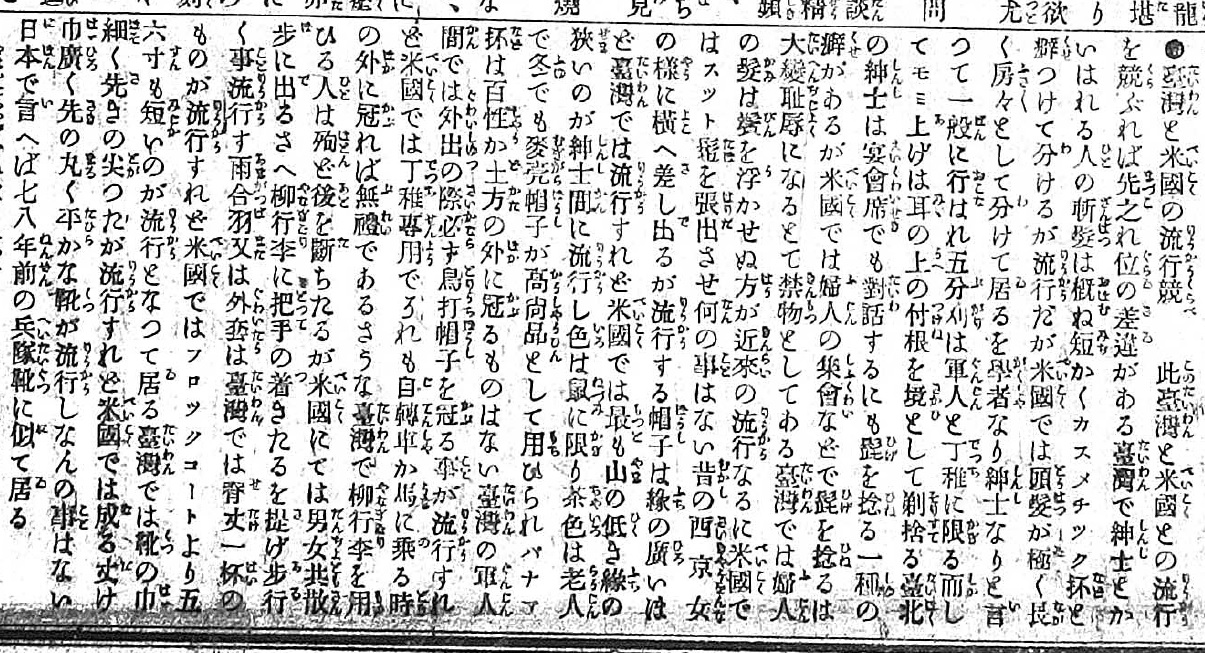 ●臺灣と米國の流行競　此臺灣と米國との流行
を競ぶれば先之れ位の差違がある臺灣で紳士とか
いはれる人の斬髮は概ね短かくカスメチック抔と
癖つけて分けるが流行だが米國では頭髮が極く長
く房々として分けて居るを學者なり紳士なりと言
つて一般に行はれ五分刈は軍人と丁稚に限る而し
てモミ上げは耳の上の付根を境として剃捨る臺北
の紳士は宴會席でも對話するにも髭を捻る一種の
癖があるが米國では婦人の集會などで髭を捻るは
大變恥辱になるとて禁物としてある臺灣では婦人
の髮は鬢を浮かせぬ方が近來の流行なるに米國で
はスット髱を張出させ何の事はない昔の西京女
の樣に横へ差し出るが流行する帽子は緣の廣いは
ど臺灣では流行すれど米國では最も山の低き緣の
狹いのが紳士間に流行し色は鼠に限り茶色は老人
で冬でも麥藁帽子が高尚品として用ひられパナマ
抔は百性か土方の外に冠るものはない臺灣の軍人
間では外出の際必ず鳥打帽子を冠る事が流行すれ
ど米國では丁稚專用でそれも自轉車か馬に乘る時
の外に冠れば無禮であるさうな臺灣で柳行李を用
ひる人は殆ど後を斷ちたるが米國にては男女共散
步に出るさへ柳行李に把手の着きたるを提げ步行
く事流行す雨合羽又は外套は臺灣では脊丈一杯の
ものが流行すれど米國ではフロックコートより五
六寸も短いのが流行となつて居る臺灣では靴の巾
細く先きの尖つたが流行すれど米國では成る丈け
巾廣く先の丸く平かな靴が流行しなんの事はない
日本で言へば七八年前の兵隊靴に似て居る